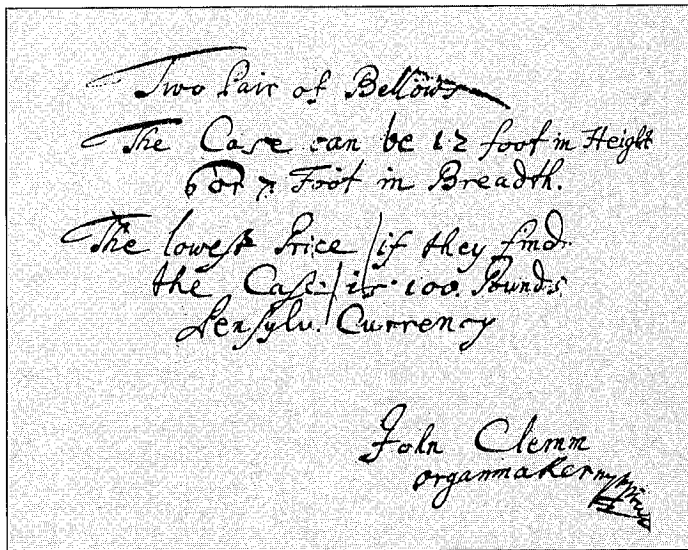 Two Pair of Bellows
The Case can be 12 foot in Height
6 or 7 Foot in Breadth.
The lowest Price /if they find
the Case/ is 100. Pounds
Pensylv. Currency
John Clemm
organmaker